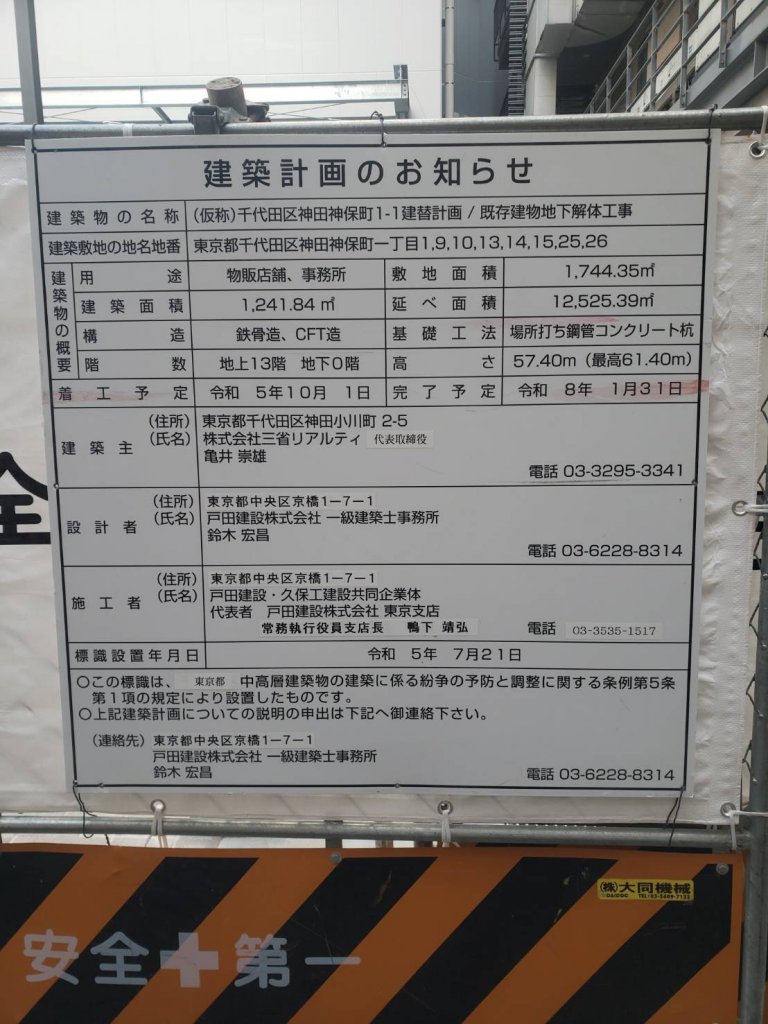 建築計画のお知らせ
建築物の名称 (仮称)千代田区神田神保町1-1建替計画 / 既存建物地下解体工事
建築敷地の地名地番 東京都千代田区神田神保町一丁目1,9,10,13,14,15,25,26
建築物の概要
用途 物販店舗、事務所 敷地面積 1,744.35㎡
建築面積 1,241.84 ㎡ 延べ面積 12,525.39㎡
構造 鉄骨造、CFT造 基礎工法 場所打ち鋼管コンクリート杭
階数 地上13階 地下0階 高さ 57.40m (最高61.40m)
着工予定 令和 5年10月 1日 完了予定 令和 8年 1月31日
建築主 (住所) 東京都千代田区神田小川町 2-5
(氏名) 株式会社三省リアルティ 代表取締役
亀井 崇雄
電話 03-3295-3341
設計者 (住所) 東京都中央区京橋1-7-1
(氏名) 戸田建設株式会社 一級建築士事務所
鈴木 宏昌
電話 03-6228-8314
施工者 (住所) 東京都中央区京橋1-7-1
(氏名) 戸田建設・久保工建設共同企業体
代表者 戸田建設株式会社 東京支店
常務執行役員支店長 鴨下 靖弘 電話 03-3535-1517
標識設置年月日 令和 5年 7月21日
○この標識は、 東京都 中高層建築物の建築に係る紛争の予防と調整に関する条例第5条
第1項の規定により設置したものです。
○上記建築計画についての説明の申出は下記へ御連絡下さい。
(連絡先) 東京都中央区京橋1-7-1
戸田建設株式会社 一級建築士事務所
鈴木 宏昌 電話 03-6228-8314
全
(株)大同機械
安全+第一